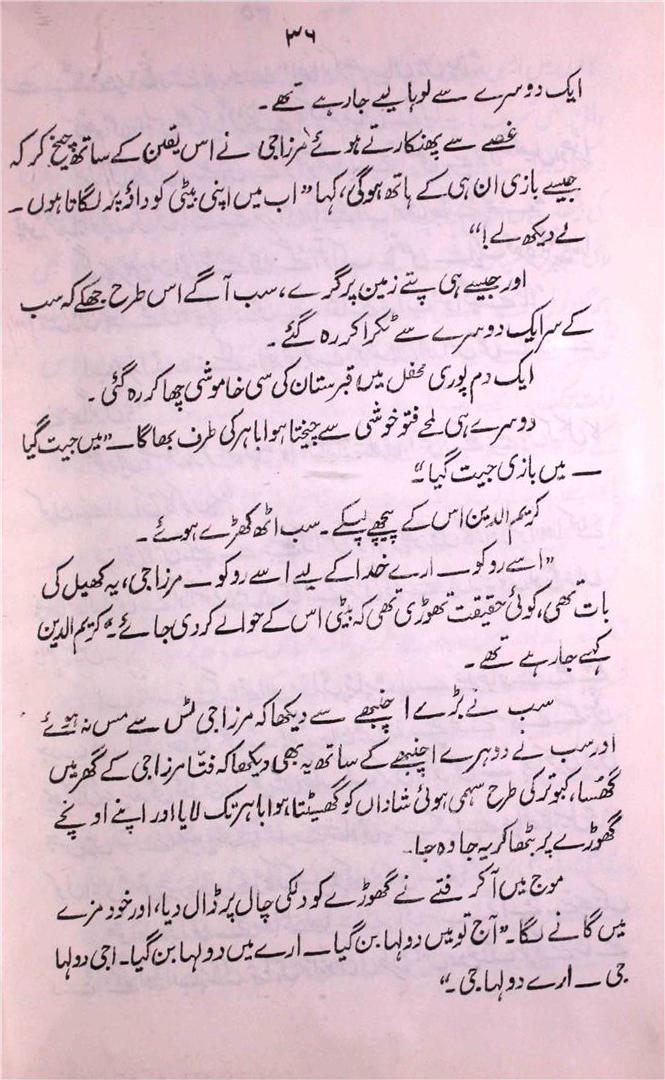 ۳۶
ایک دوسرے سے لوہا لیے جارہے تھے۔
غصے سے پھنکارتے ہوئے مرزا جی نے اس یقین کے ساتھ چیخ کر کہ
جیسے بازی ان ہی کے ہاتھ ہوگی، کہا ”اب میں اپنی بیٹی کو داؤ پر لگاتا ہوں۔
لے دیکھ لے!“
اور جیسے ہی پتے زمین پر گرے، سب آگے اس طرح جھکے کہ سب
کے سر ایک دوسرے سے ٹکرا کر رہ گئے۔
ایک دم پوری محفل میں قبرستان کی سی خاموشی چھا کر رہ گئی۔
دوسرے ہی لمحے فتو خوشی سے چیختا ہوا باہر کی طرف بھاگا۔ ”میں جیت گیا
— میں بازی جیت گیا۔“
کریم الدین اس کے پیچھے لپکے۔ سب اٹھ کھڑے ہوئے۔
”اسے روکو — ارے خدا کے لیے اسے روکو — مرزا جی، یہ کھیل کی
بات تھی، کوئی حقیقت تھوڑی تھی کہ بیٹی اس کے حوالے کردی جائے۔“ کریم الدین
کہے جارہے تھے۔
سب نے بڑے اچنبھے سے دیکھا کہ مرزا جی ٹس سے مس نہ ہوئے
اور سب نے دوہرے اچنبھے کے ساتھ یہ بھی دیکھا کہ فتّا مرزا جی کے گھر میں
گھُسا، کبوتر کی طرح سہمی ہوئی شاداں کو گھسیٹتا ہوا باہر تک لایا اور اپنے اونچے
گھوڑے پر بٹھا کر یہ جا وہ جا۔
موج میں آکر فتے نے گھوڑے کو دلکی چال پر ڈال دیا، اور خود مزے
میں گانے لگا۔ ”آج تو میں دولہا بن گیا — ارے میں دولہا بن گیا۔ اجی دولہا
جی — ارے دولہا جی۔“